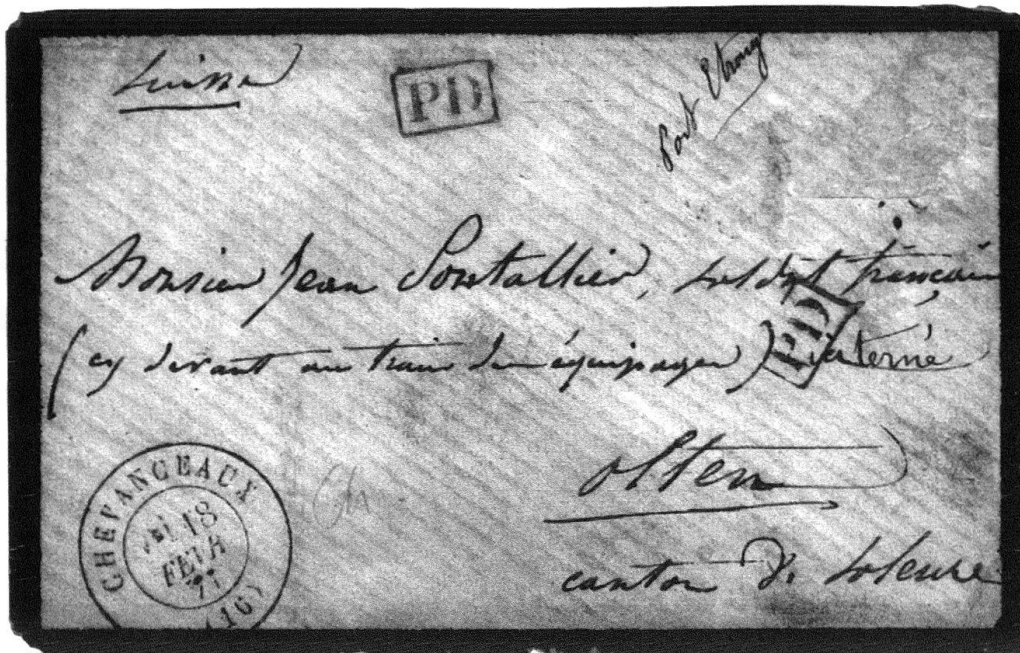 Suisse
PD
Port Etrang
Monsieur Jean Pontallier, soldat français
(cy devant au train des équipages) interné
PD
Olten
canton de Soleure
CHEVANCEAUX
18
FEVR
71
(16)